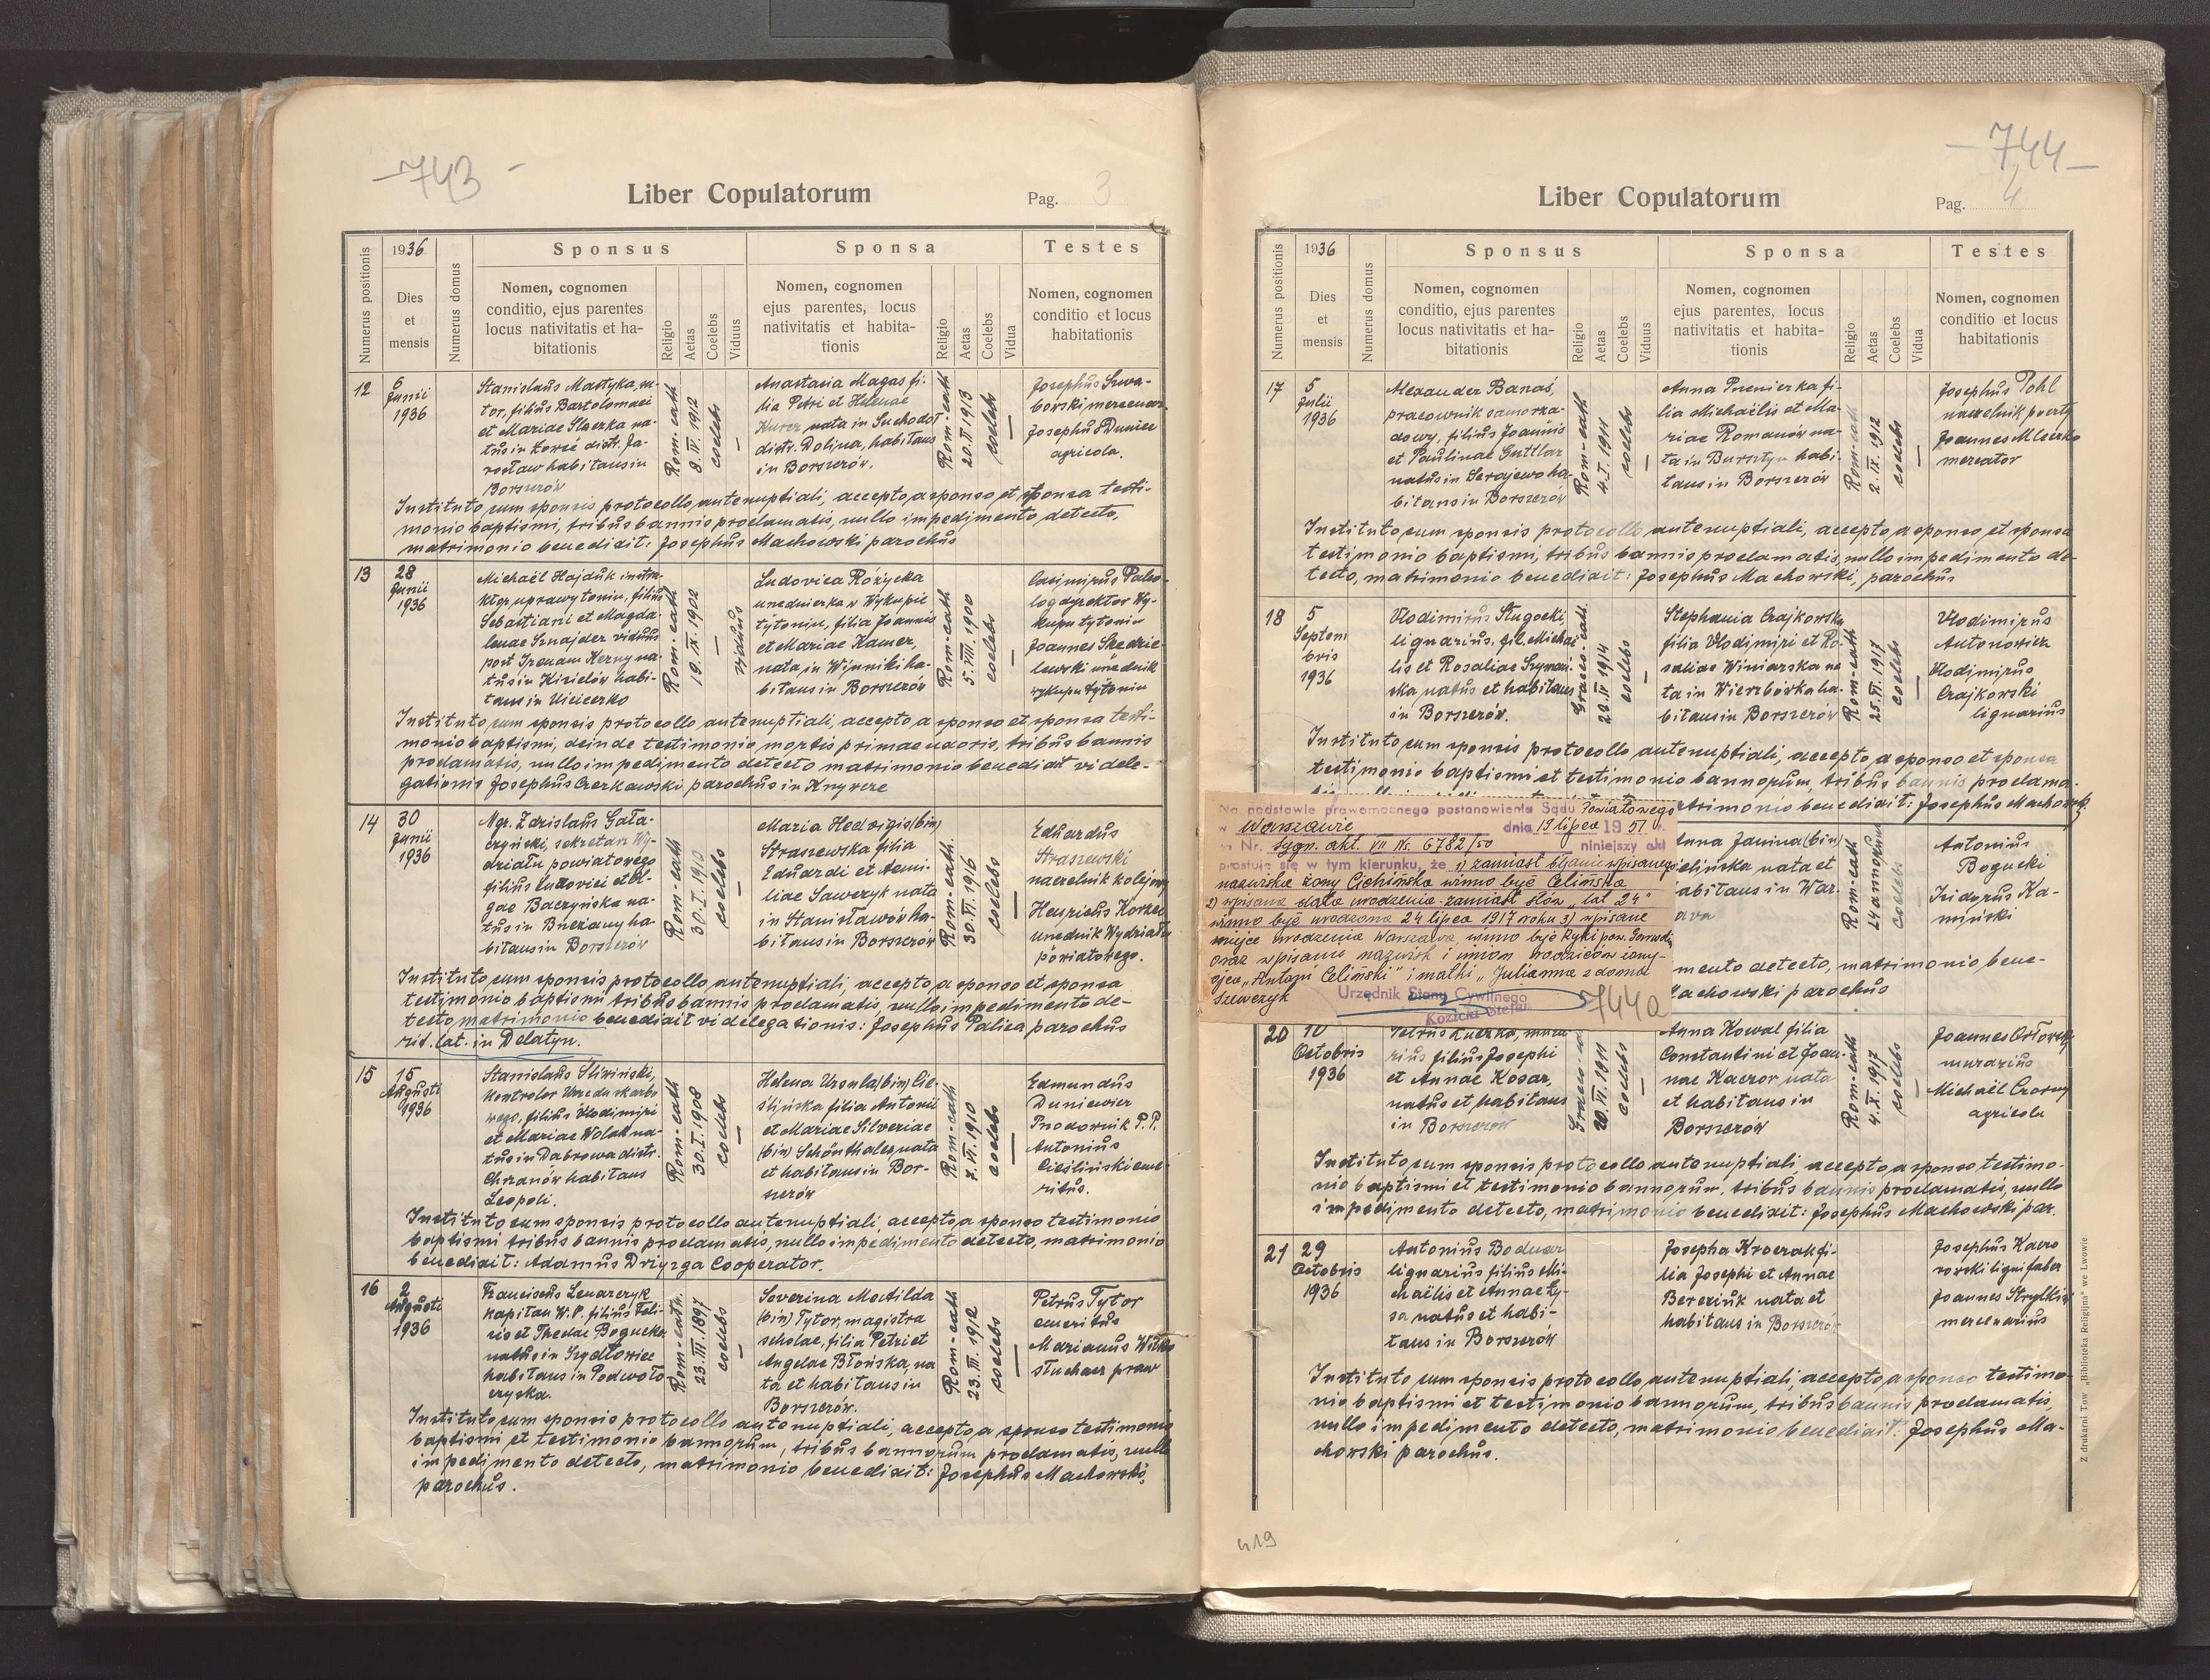 743
Liber Copulatorum
Pag. 3
Numerus positionis
1936
Dies
et
mensis
Numerus domus
Sponsus
Nomen, cognomen
conditio, ejus parentes
locus nativitatis et ha-
bitationis
Religio
Aetas
Coelebs
Viduus
Sponsa
Nomen, cognomen
ejus parentes, locus
nativitatis et habita-
tionis
Religio
Aetas
Coelebs
Vidua
Testes
Nomen, cognomen
conditio et locus
habitationis
12
6
Junii
1936
Stanislaus Mastyka, su-
tor, filius Bartolomaei
et Mariae Skerka na-
tus in distr. Ja-
rosław habitans in
Borszczów
Rom-cath
8. II. 1912
coelebs
Anastasia Magas fi-
lia Petri et Helenae
Kurcz nata in Suchodoł
distr. Dolina, habitans
in Borszczów.
Rom-cath
20. II 1913
coelebs
Josephus Szwa-
borski mercenar.
Josephus Duniec
agricola.
Instituto cum sponsis protocollo antenuptiali, accepto a sponso et sponsa testi-
monio baptismi, tribus bannis proclamatis, nullo impedimento detecto,
matrimonio benedixit: Josephus Machowski parochus
13
28
Junii
1936
Michaël Hajduk instru-
ktor uprawy toniu, filius
Sebastiani et Magda-
lenae Sznajder viduus
post Irenam Kerny na-
tus in Kisielów habi-
tans in Uścieczko
Rom-cath
19. IX. 1902
viduus
Ludovica Różycka
urzędniczka w Wykupie
tytoniu, filia Joannis
et Mariae Kamer,
nata in Winniki ha-
bitans in Borszczów
Rom-cath
5. VIII. 1900
coelebs
Casimirus Paleo-
log dyrektor Wy-
kupu tytoniu
Joannes Skedzie-
lewski urzędnik
wykupu tytoniu
Instituto cum sponsis protocollo antenuptiali, accepto a sponso et sponsa testi-
monio baptismi, deinde testimonio mortis primae uxoris, tribus bannis
proclamatis, nullo impedimento detecto matrimonio benedixit vi dele-
gationis Josephus Czerkawski parochus in Krywcze
14
30
Junii
1936
Mgr. Zdzislaus Gała-
czyński, sekretarz Wy-
działu powiatowego
filius Ludovici et Ol-
gae Baczyńska na-
tus in Brzeżany ha-
bitans in Borszczów
Rom-cath
30. I. 1910
coelebs
Maria Hedvigis (bin)
Straszewska filia
Eduardi et Aemi-
liae Saweryk nata
in Stanisławów ha-
bitans in Borszczów
Rom-cath.
30. VI. 1916
coelebs
Eduardus
Straszewski
naczelnik kolejowy
Henricus
urzednik Wydziału
powiatowego.
Instituto cum sponsis protocollo antenuptiali, accepto a sponso et sponsa
testimonio baptismi tribus bannis proclamatis, nullo impedimento de-
tecto matrimonio benedixit vi delegationis: Josephus Palica parochus
rit. lat. in Delatyn.
15
15
Augusti
1936
Stanislaus Śliwiński,
Kontrolor Urzędu skarbo
wego, filius Vlodimiri
et Mariae Wolak na-
tus in Dąbrowa distr.
Chrzanów habitans
Leopoli.
Rom-cath
30. I. 1908
coelebs
Helena Ursula (bin) Cie-
ślińska filia Antonii
et Mariae Silveriae
(bin) Schönthaler nata
et habitans in Bor-
szczów
Rom-cath
7. VI. 1910
coelebs
Edmundus
Duniewicz
Przodownik P. P.
Antonius
Cieśliński eme-
ritus.
Instituto cum sponsis protocollo antenuptiali, accepto a sponso testimonio
baptismi tribus bannis proclamatis, nullo impedimento detecto, matrimonio
benedixit: Adamus Drzyzga Cooperator.
16
2
Augusti
1936
Franciscus Lenarczyk
kapitan W. P. filius Feli-
cis et Theclae Bogucka
natus in Szydłowiec
habitans in Podwoło
czyska.
Rom-cath.
23. III. 1897
coelebs
Severina Mathilda
(bin) Tytor, magistra
scholae, filia Petri et
Angelae Błońska, na
ta et habitans in
Borszczów.
Rom-cath
23. III. 1912
coelebs
Petrus Tytor
emeritus
Marianus
słuchacz praw
Instituto cum sponsis protocollo antenuptiali, accepto a sponso testimonio
baptismi et testimonio bannorum, tribus bannorum proclamatis, nullo
impedimento detecto, matrimonio benedixit: Josephus Machowski,
parochus.
744
Liber Copulatorum
Pag. 4
Numerus positionis
1936
Dies
et
mensis
Numerus domus
Sponsus
Nomen, cognomen
conditio, ejus parentes
locus nativitatis et ha-
bitationis
Religio
Aetas
Coelebs
Viduus
Sponsa
Nomen, cognomen
ejus parentes, locus
nativitatis et habita-
tionis
Religio
Aetas
Coelebs
Vidua
Testes
Nomen, cognomen
conditio et locus
habitationis
17
5
Julii
1936
Alexander Banaś,
pracownik samorzą-
dowy, filius Joannis
et Paulinae Guttlar
natus in Serajewo ha-
bitans in Borszczów
Rom-cath
4. I. 1911
coelebs
Anna Pszenierka fi-
lia Michaëlis et Ma-
riae Romanów na-
ta in Bursztyn habi-
tans in Borszczów
Rom-cath
2. IX. 1912
coelebs
Josephus Pohl
naczelnik poczty
Joannes Mleczko
mercator
Instituto cum sponsis protocollo antenuptiali, accepto a sponso et sponsa
testimonio baptismi, tribus bannis proclamatis, nullo impedimento de-
tecto, matrimonio benedixit: Josephus Machowski, parochus
18
5
Septem
bris
1936
Vlodimirus Stugocki
lignarius, fil. Michaë
lis et Rosaliae Szyman-
ska natus et habitans
in Borszczów.
Graeco-cath
28. IV 1914
coelebs
Stephania Czajkowska
filia Vlodimiri et Ro-
saliae Winiarska na
ta in Wierzbówka ha-
bitans in Borszczów
Rom-cath
25. VI. 1917
coelebs
Vlodimirus
Antonowicz
Vlodimirus
Czajkowski
lignarius
Instituto cum sponsis protocollo antenuptiali, accepto a sponso et sponsa
testimonio baptismi et testimonio bannorum, tribus bannis proclama-
matrimonio benedixit: Josephus Machowski
Na podstawie prawomocnego postanowienia Sądu Powiatowego
w Warszawie dnia 19 lipca 1951 r.
Nr. sygn. akt. VII Ns. 6782/50 niniejszy akt
prostuje się w tym kierunku, że 1) zamiast błędnie wpisanego
nazwiska żony Cichińska winno być Celińska
2) wpisana data urodzenia-zamiast słów „lat 24"
winno być urodzona 24 lipca 1917 roku 3) wpisane
miejsce urodzenia Warszawa, winno być Ryki pow. Garwolin
oraz wpisanie nazwisk i imion rodziców żony-
ojca „Antoni Celiński" i matki „Julianna z domu
Szewczyk
Urzędnik Stanu Cywilnego
Kozicki Stefan
744a
Anna Janina (bin)
ielińska nata et
abitans in War-
Rom-cath
24 annorum
coelebs
Antonius
Bogucki
Isidorus Ka-
miński
mento detecto, matrimonio bene-
achowski parochus
20
10
Octobris
1936
Petrus Luczka, mura
rius filius Josephi
et Annae Kosar,
natus et habitans
in Borszczów
20. VI. 1911
coelebs
Anna Kowal filia
Constantini et Joan-
nae Kaczor nata
et habitans in
Borszczów
Rom-cath
4. X. 1917
coelebs
Joannes Orłowski
murarius
Michaël Czorny
agricola
Instituto cum sponsis protocollo antenuptiali, accepto a sponso testimo-
nio baptismi et testimonio bannorum, tribus bannis proclamatis, nullo
impedimento detecto, matrimonio benedixit: Josephus Machowski par.
21
29
Octobris
1936
Antonius Bodnar
lignarius filius Mi-
chaëlis et Annae Ły-
sa natus et habi-
tans in Borszczów
Josepha Kroczak fi-
lia Josephi et Annae
Bereziuk nata et
habitans in Borszczów
Josephus Kaczo
rowski ligni faber
Joannes
mercenarius
Instituto cum sponsis protocollo antenuptiali, accepto a sponso testimo
nio baptismi et testimonio bannorum, tribus bannis proclamatis,
nullo impedimento detecto, matrimonio benedixit: Josephus Ma-
chowski parochus.
Z drukarni Tow. „Biblioteka Religijna" we Lwowie.
419